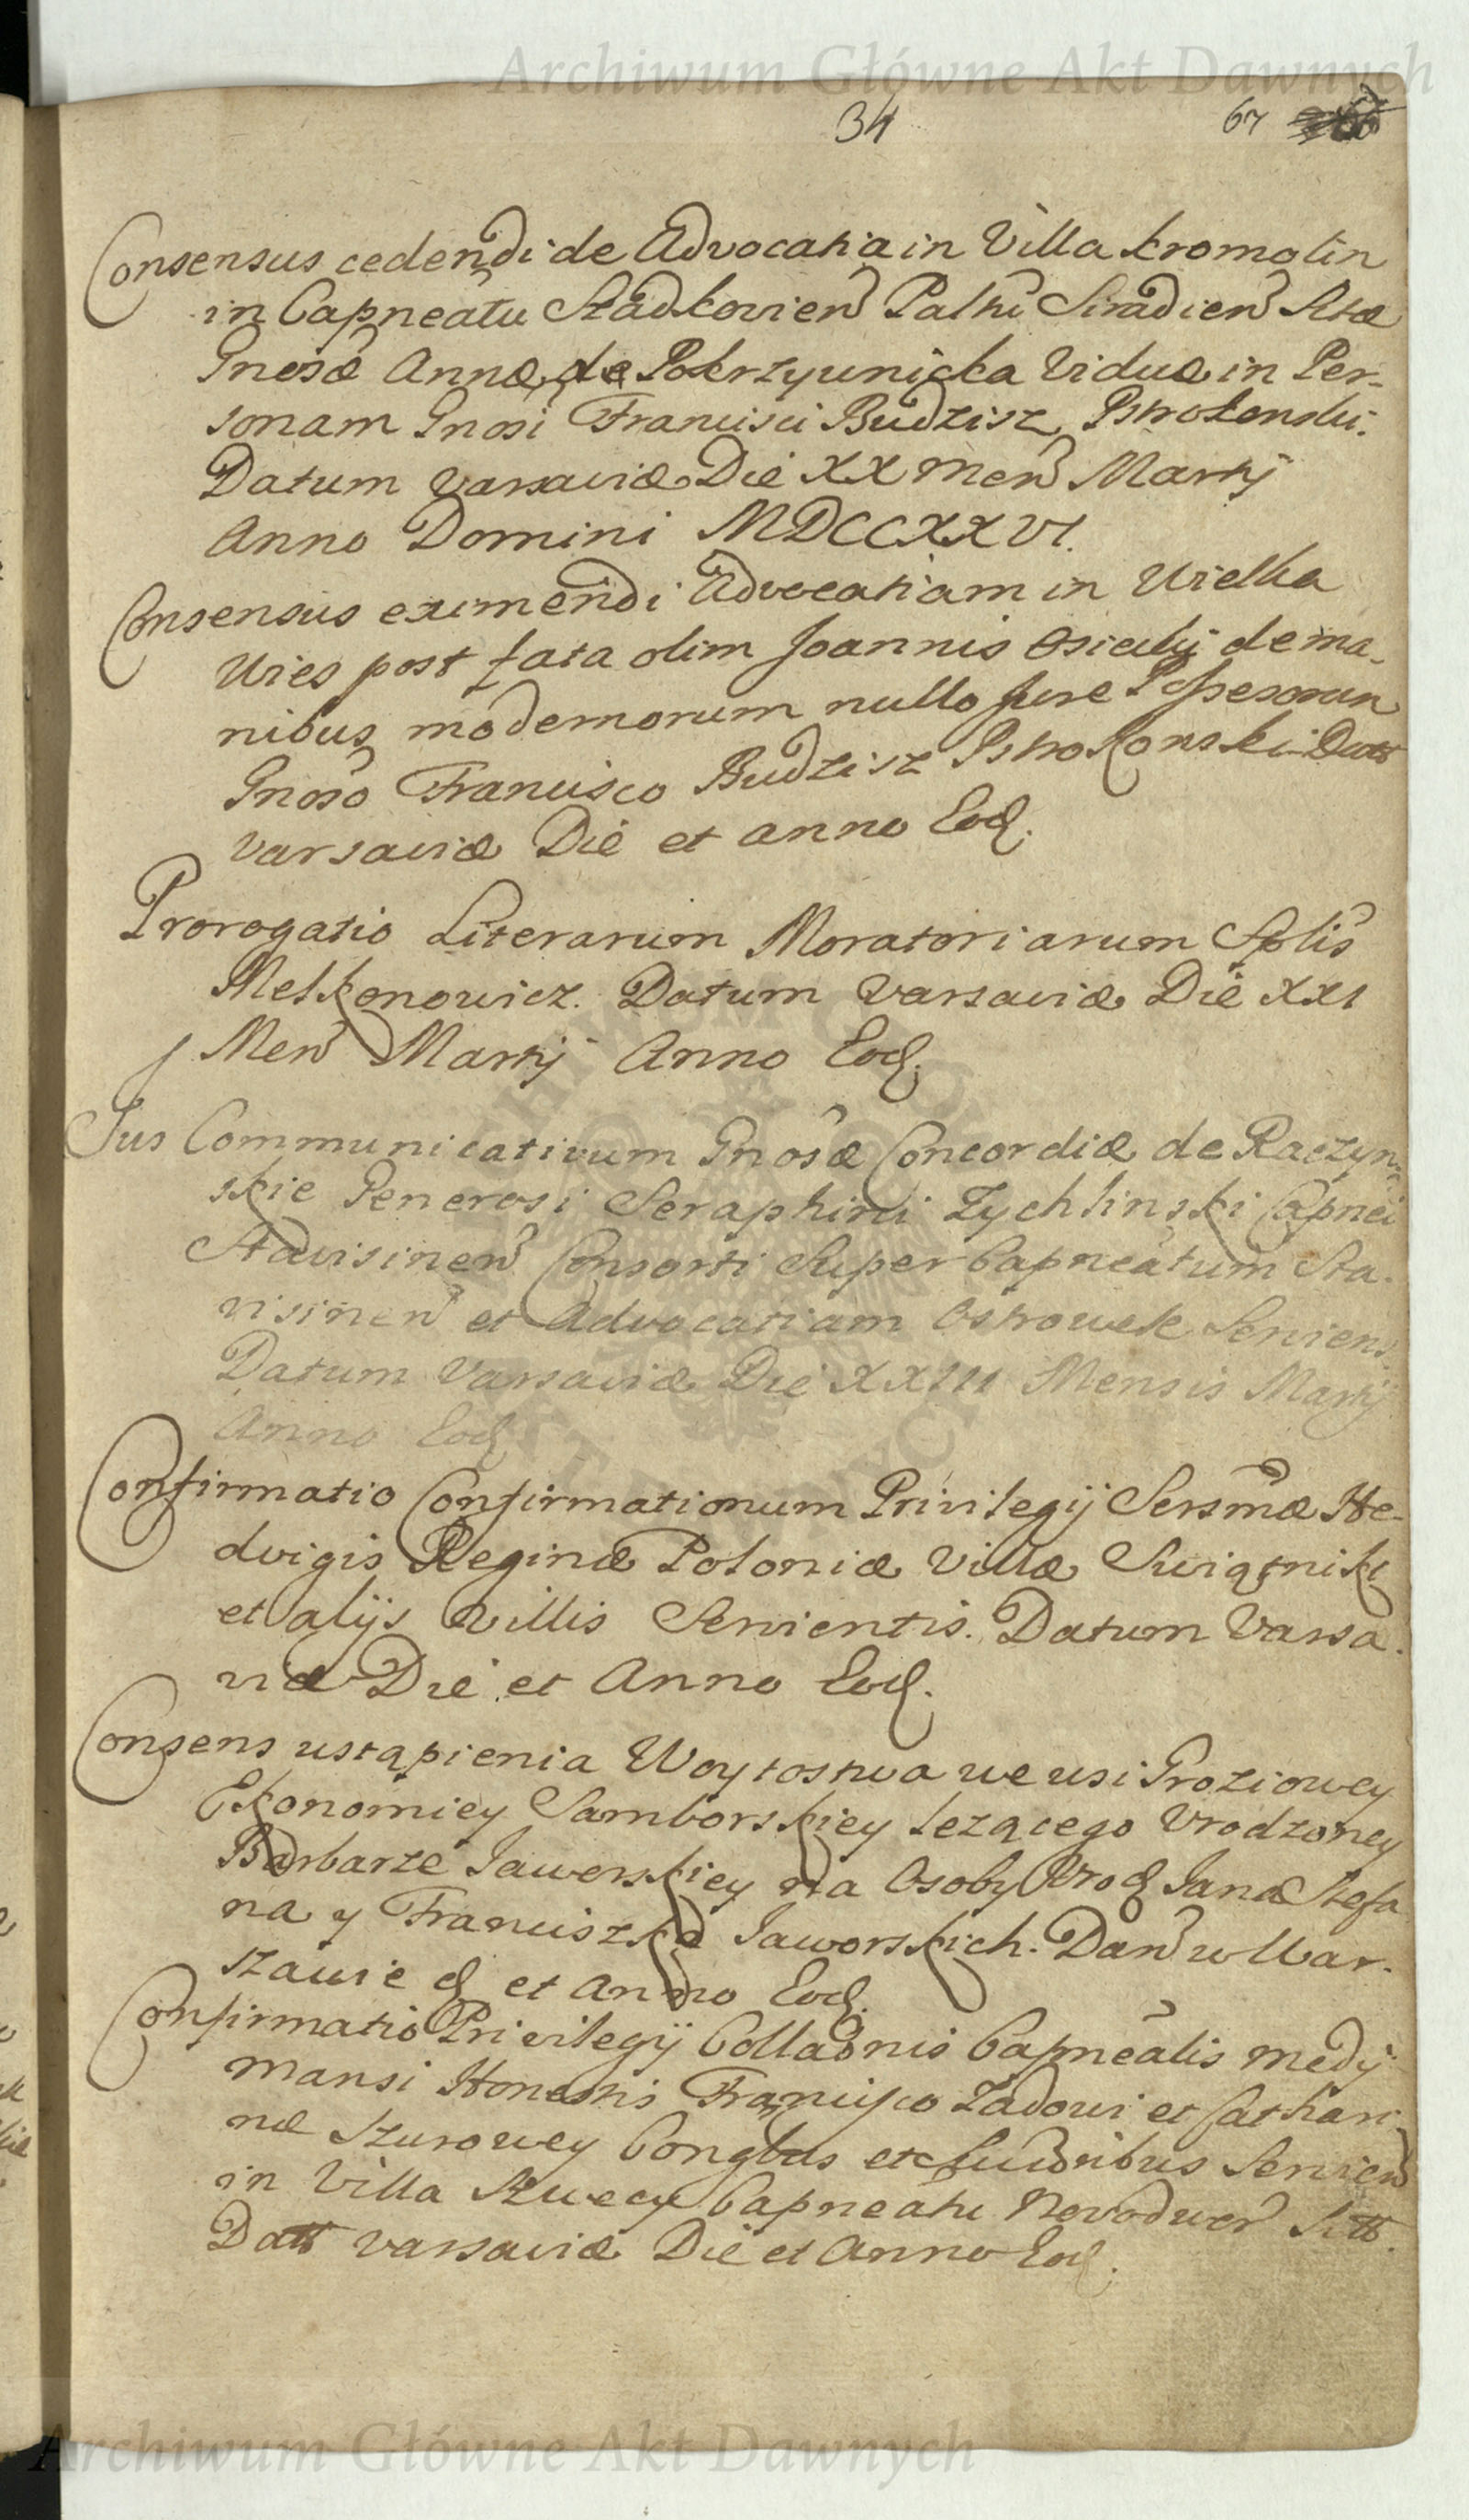 Archiwum Główne Akt Dawnych
34
67
Consensus cedendi de Advocatia in Villa Kromolin
in Capneatu Szadkovien Palttu Siradien Sitæ
Gnosæ Annæ de Pokrzywnicka Viduæ in Per-
sonam Gnosi Francisci Budzisz Pstrokonski.
Datum Varsaviæ Die XX Men Martij
Anno Domini MDCCXXVI.
Consensus eximendi Advocatiam in Wielka
Wies post fata olim Joannis Osiecki de ma-
nibus modernorum nullo Jure Possesorum
Gnoso Francisco Budzisz Pstrokonski Datt
Varsaviæ Die et anno Eod.
Prorogatio Literarum Moratoriarum Spblis
Melkonowicz. Datum Varsaviæ Die XXI
Men Martij Anno Eod.
Jus Communicativum Gnosæ Concordiæ de Raczyn-
skie Generosi Seraphini Zychlinski Capnei
Stavisinen Consorti Super Capneatum Sta-
visinen et Advocatiam Ostrowek Serviens.
Datum Varsaviæ Die XXIII Mensis Martij
Anno Eod.
Confirmatio Confirmationum Privilegij Sersmæ He-
dvigis Reginæ Poloniæ Villæ Swiątniki
et alijs Villis Servientis. Datum Varsa-
viæ Die et Anno Eod.
Consens ustąpienia Woytostwa we wsi Groziowey
Ekonomiey Samborskiey lezącego Vrodzoney
Barbarze Jaworskiey na Osoby Vrod Jana Stefa
na y Franciszka Jaworskich. Dan w War-
szawie d et Anno Eod.
Confirmatio Privilegij Collaonis Capnealis medij
Mansi Honestis Francisco Zadowi et Cathari-
næ Szurowey Congbus et Suconibus Servien
in Villa Szwecy Capneatu Novodwor Sitt.
Datt Varsaviæ Die et Anno Eod.
Archiwum Główne Akt Dawnych